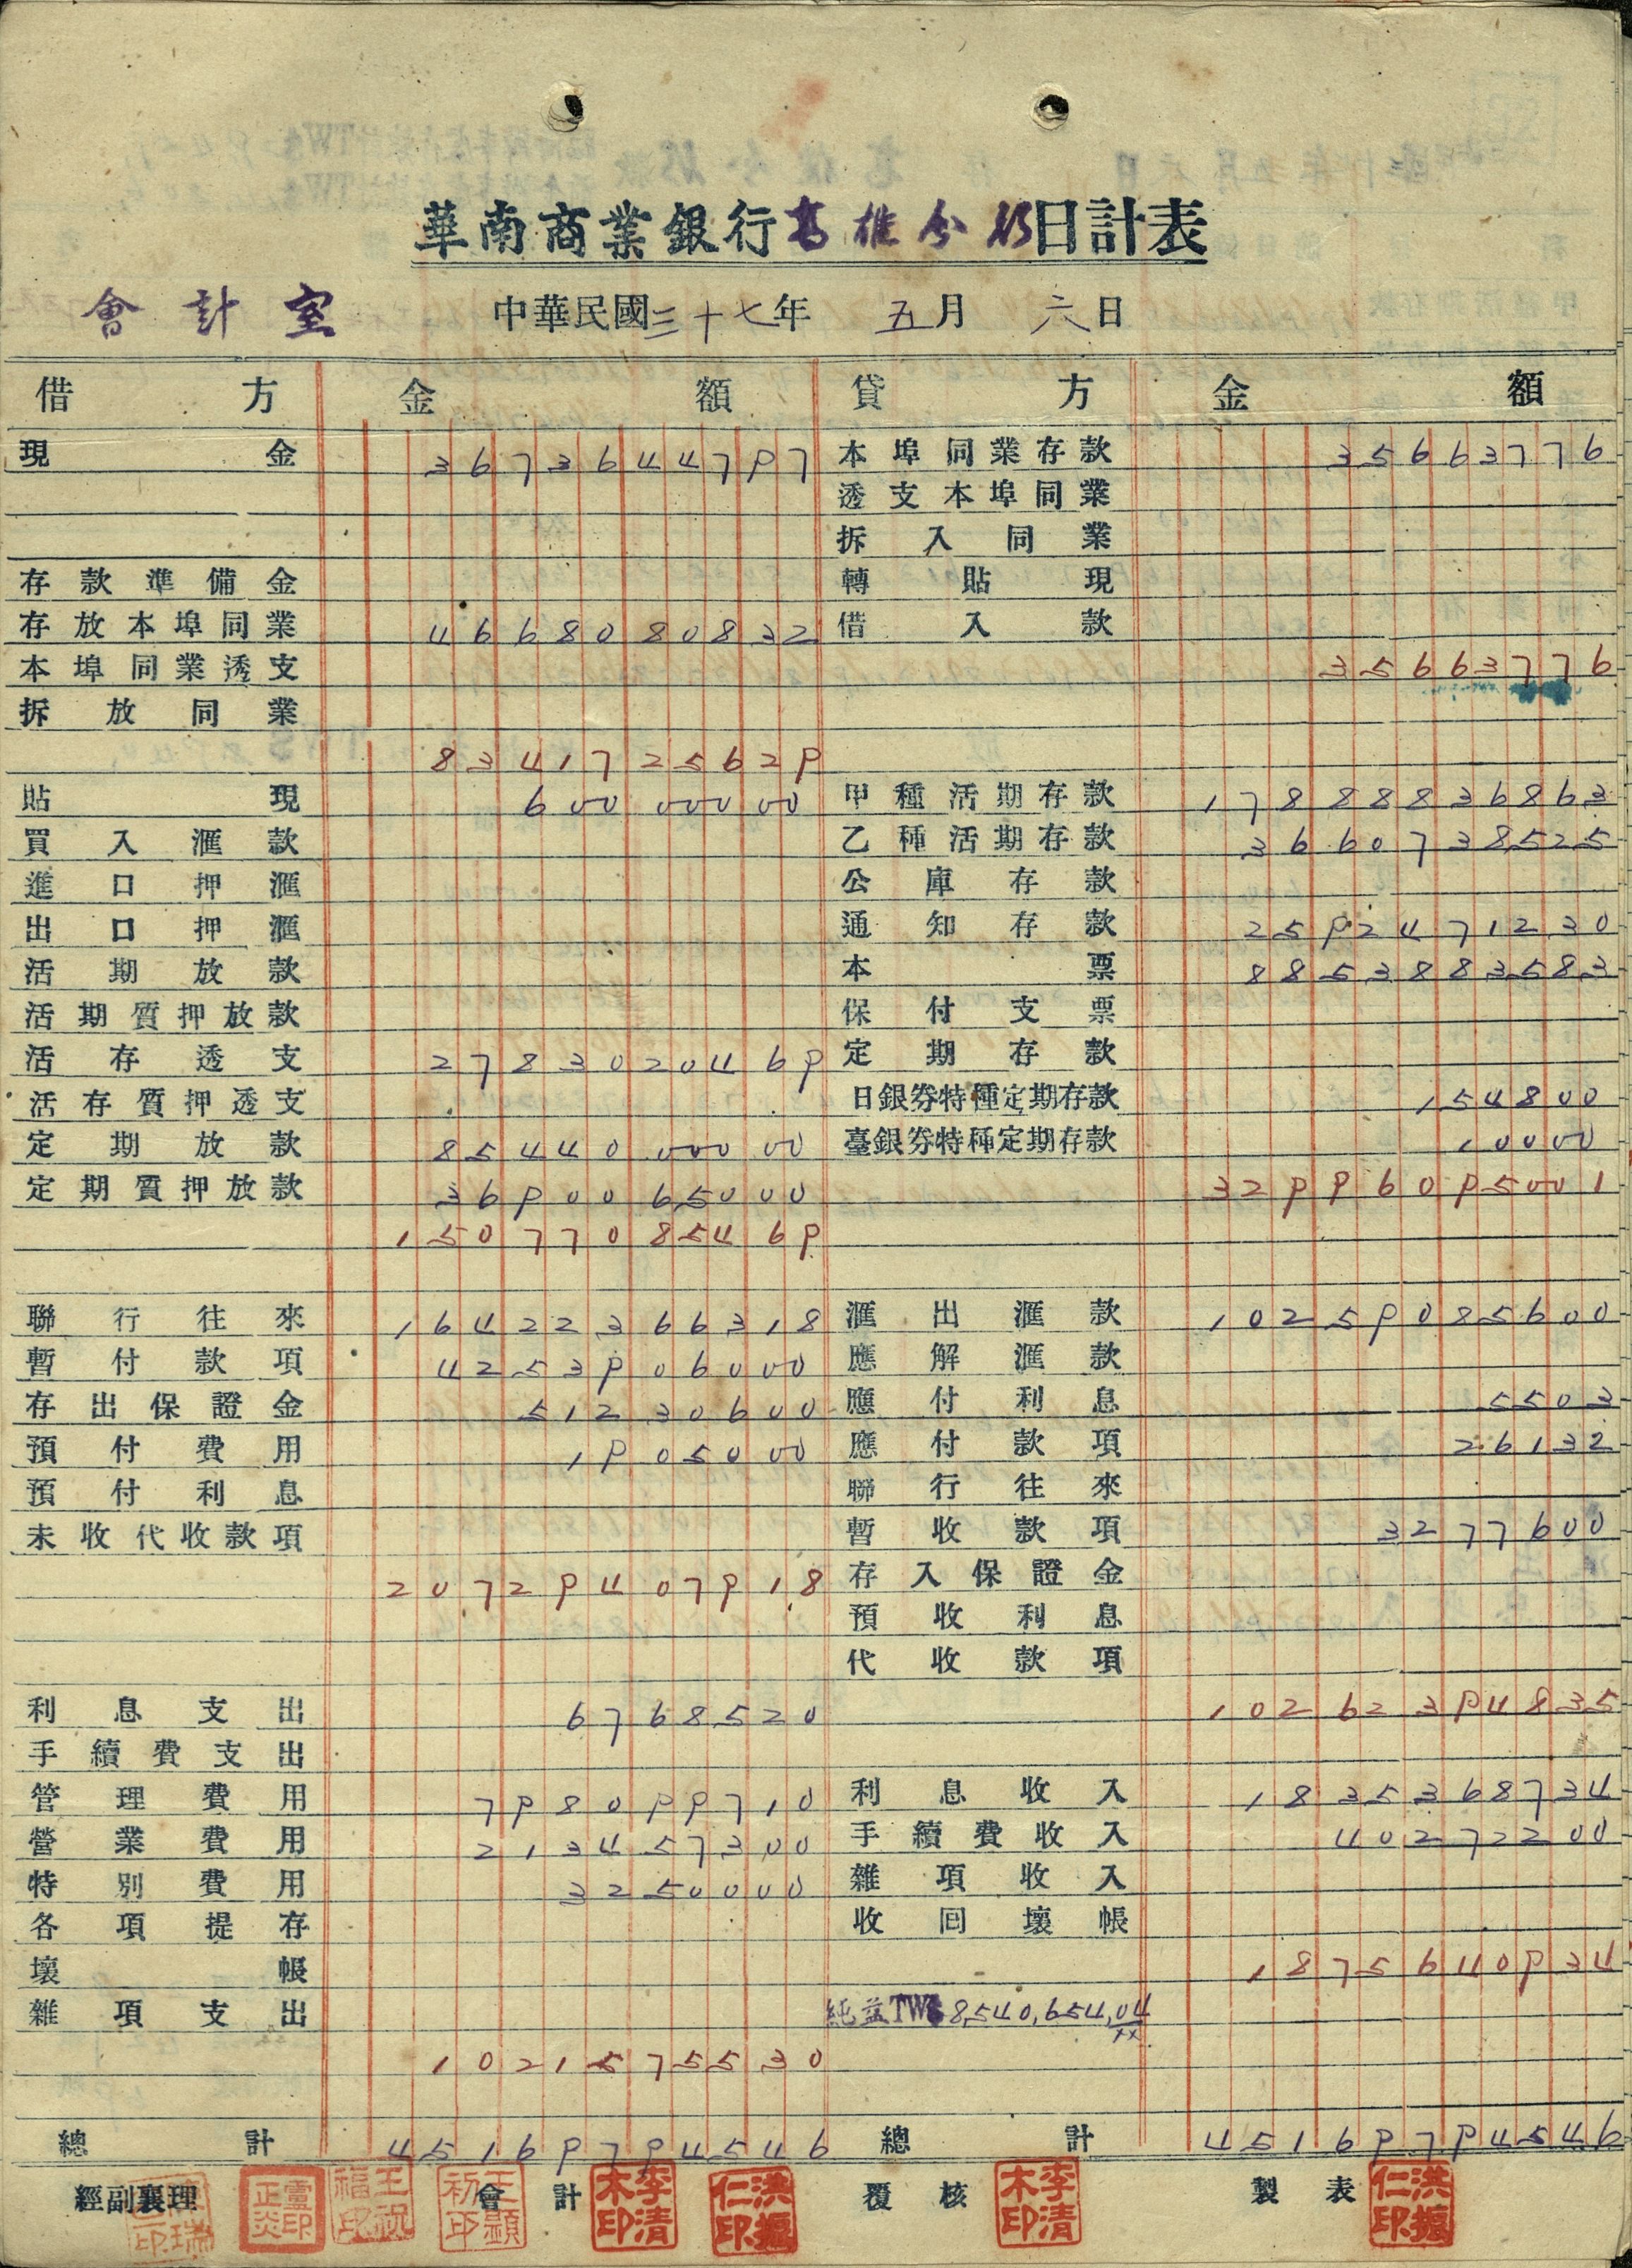 華南商業銀行高雄分行日計表
會計室 中華民國三十七年 五月 六日
借方 金額 貸方 金額
現金 3673644797 本埠同業存款 35663776
透支本埠同業
拆入同業
存款準備金 轉貼現
存放本埠同業 4668080832 借入款
本埠同業透支 35663776
拆放同業
8341725629
貼現 60000000 甲種活期存款 17888836863
買入滙款 乙種活期存款 3660738525
進口押滙 公庫存款
出口押滙 通知存款 2592471230
活期放款 本票 8853883583
活期質押放款 保付支票
活存透支 2783020469 定期存款
活存質押透支 日銀券特種定期存款 154800
定期放款 8544000000 臺銀券特種定期存款 10000
定期質押放款 3690065000 32996095001
15077085469
聯行往來 16422366318 滙出滙款 10259085600
暫付款項 4253906000 應解滙款
存出保證金 51230600 應付利息 5503
預付費用 1905000 應付款項 26132
預付利息 聯行往來
未收代收款項 暫收款項 3277600
20729407918 存入保證金
預收利息
代收款項
利息支出 6768520 10262394835
手續費支出
管理費用 798099710 利息收入 1835368734
營業費用 213457300 手續費收入 40272200
特別費用 3250000 雜項收入
各項提存 收回壞帳
壞帳 1875640934
雜項支出 純益TW$8,540,654.04
1021575530
總計 45169794546 總計 45169794546
經副襄理 會計 覆核 製表
盧正炎印 王祝福印 王顯初印 李清木印 洪振仁印 李清木印 洪振仁印